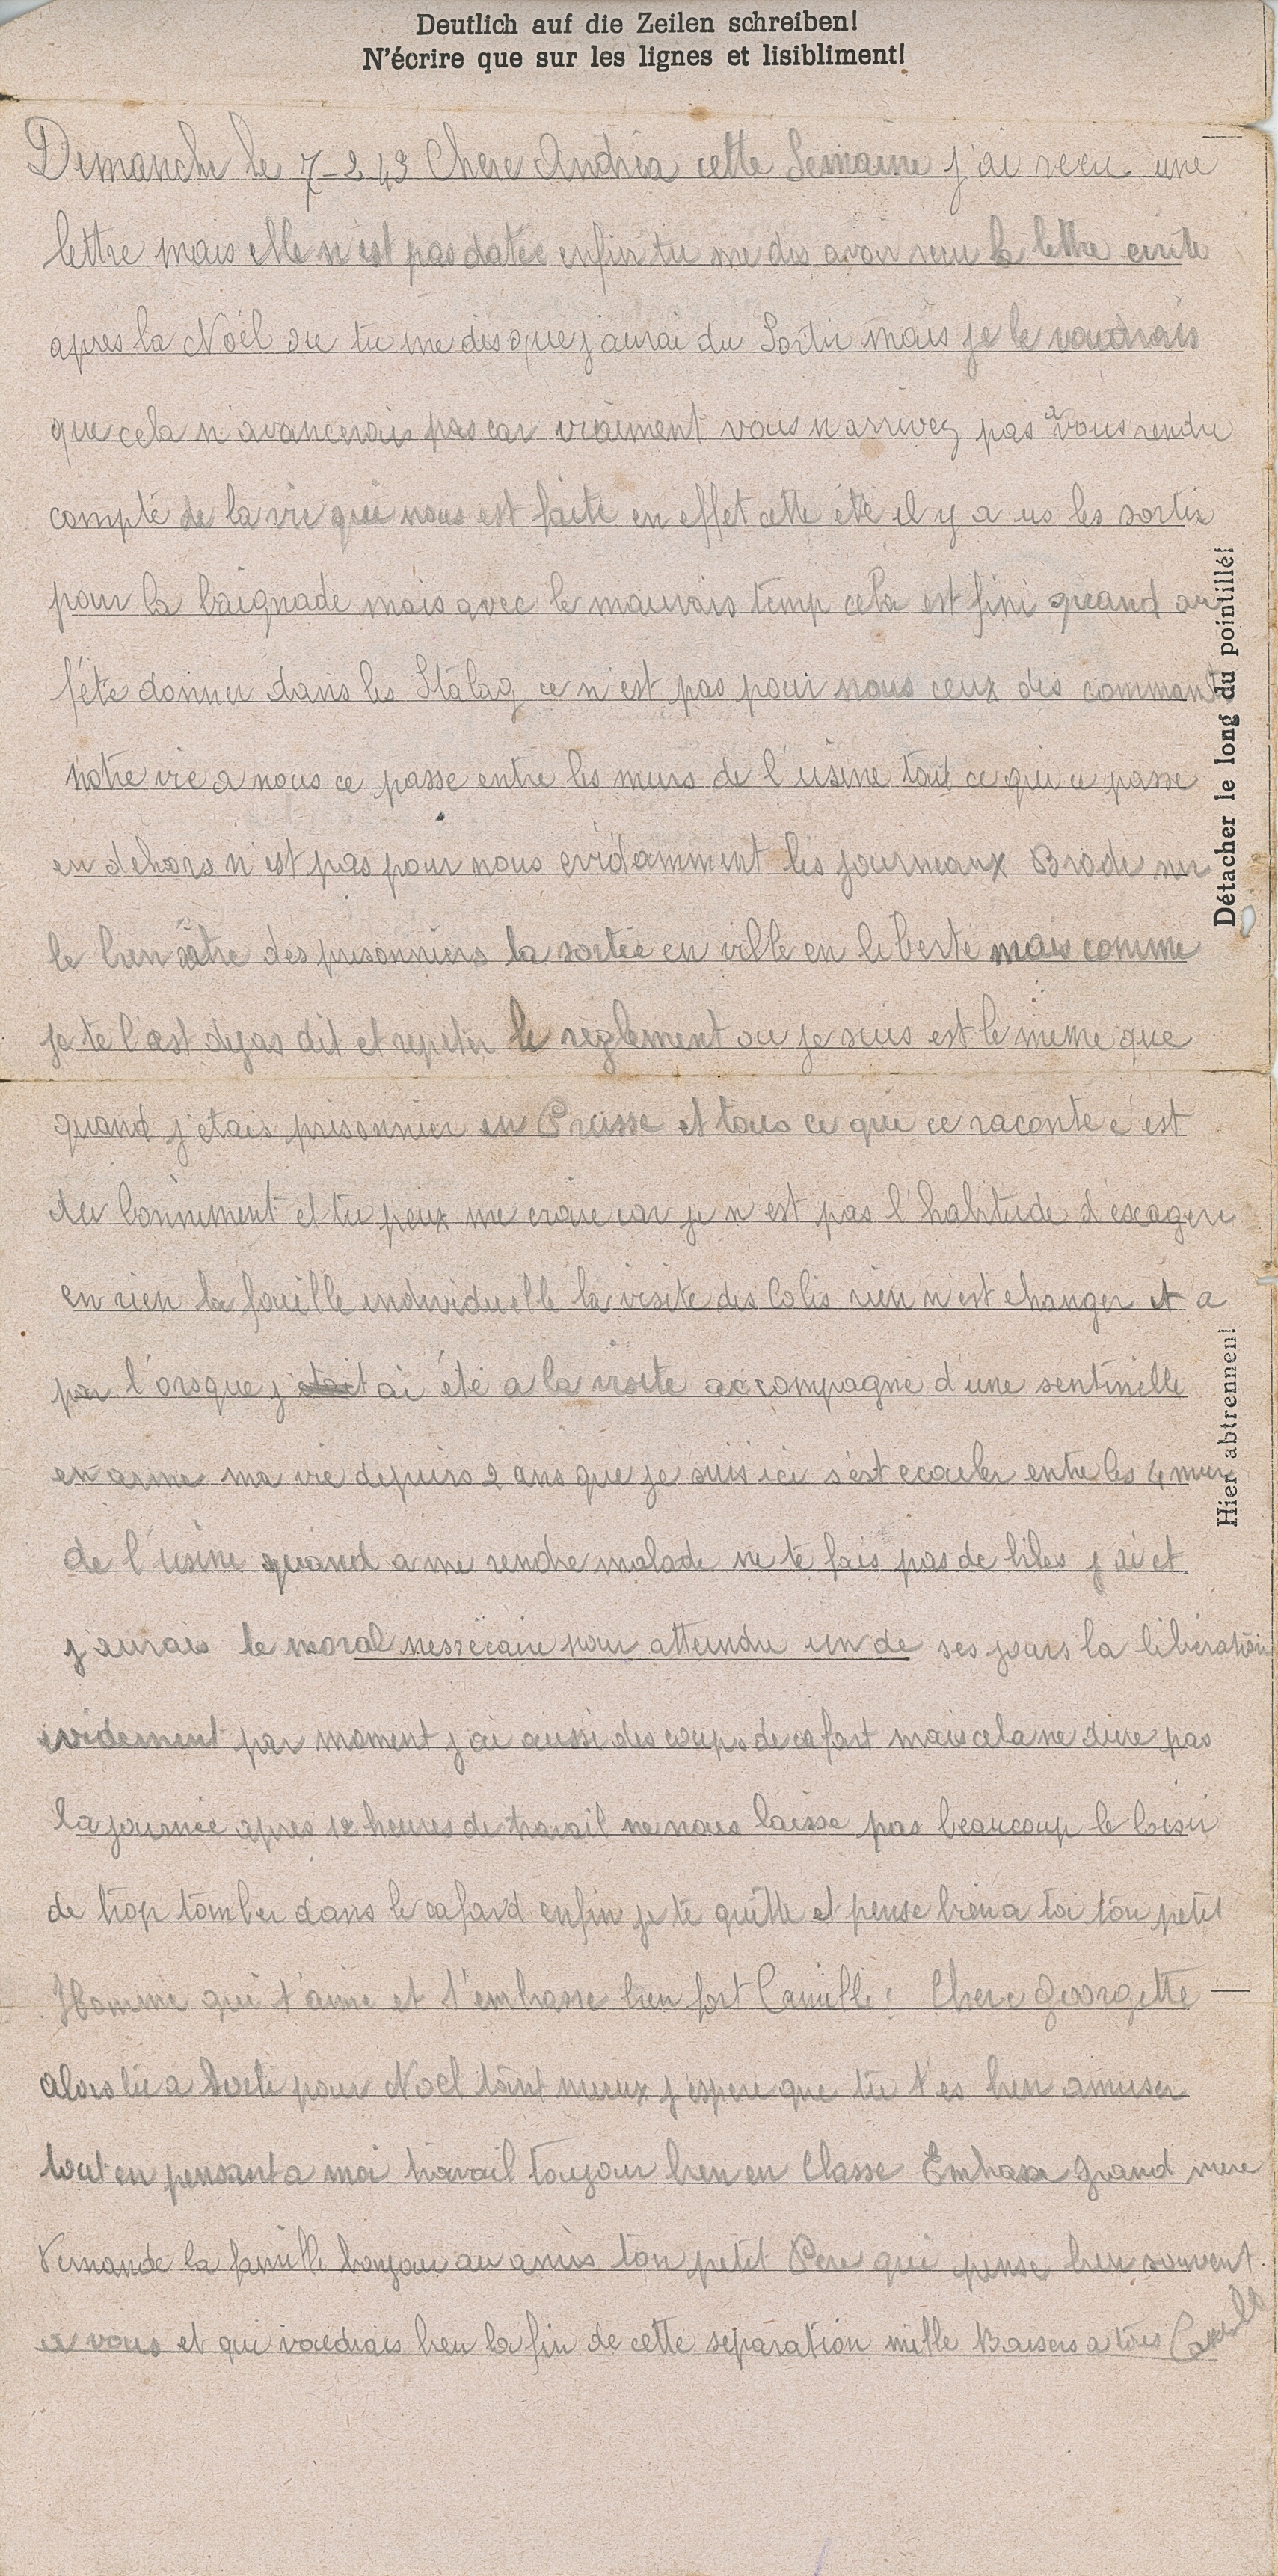 Deutlich auf die Zeilen schreiben!
N'écrire que sur les lignes et lisibliment!
Dimanche le 7-2 43 Chere Andréa cette Semaine j'ai recu une
lettre mais elle n'est pas datée enfin tu me dis avoir recu la lettre ecrite
apres la Noël ou tu me dis que j'aurai du Sortir mais je le voudrais
que cela n'avancerais pas car vraiment vous n'arrivez pas a vous rendre
compte de la vie qui nous est faite en effet cette été il y a us les sortie
pour la baignade mais avec le mauvais temp cela est fini quand au
fête donner dans les Stalag ce n'est pas pour nous ceux des command
notre vie a nous ce passe entre les murs de l'usine tout ce qui ce passe
en dehors n'est pas pour nous evidamment les journeaux Brode sur
le bien être des prisonniers la sortée en ville en liberté mais comme
je te l'est dejas dit et repeter le reglement ou je suis est le meme que
quand j'étais prisonnier en Prusse et tous ce que ce raconte c'est
du bonniment et tu peux me croire car je n'est pas l'habitude d'exagere
en rien la fouille individuelle la visite des Colis rien n'est changer et a
par l'orsque j'ai été a la visite accompagné d'une sentinelle
en arme ma vie depuis 2 ans que je suis ici s'est ecouler entre les 4 mur
de l'usine quand a me rendre malade ne te fais pas de biles j'ai et
j'aurais le moral nessécaire pour atteindre un de ses jours la libération
evidement par moment j'ai aussi des coups de cafart mais cela ne dure pas
la journée apres 12 heures de travail ne nous laisse pas beaucoup le loisir
de trop tomber dans le cafard enfin je te quitte et pense bien a toi ton petit
Homme qui t'aime et t'embrasse bien fort Camille. Chere Georgette
alors tu a Sorti pour Noel tant mieux j'espere que tu t'es bien amuser
tout en pensant a moi travail toujour bien en Classe Embrasse Grand mere
Fernande la famille bonjour au amis ton petit Pere qui pense bien souvent
a vous et qui voudrais bien la fin de cette separation mille Baisers a tous Camille
Détacher le long du pointillé!
Hier abtrennen!